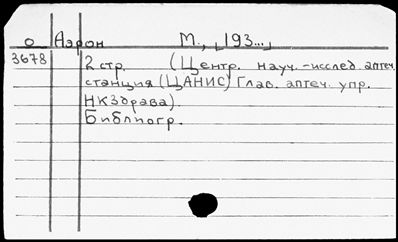 О Аэрон М., [193...]
3678 2 стр. (Центр. науч.-исслед. аптеч.
станция (ЦАНИС) Глав. аптеч. упр.
НКЗдрава).
Библиогр.